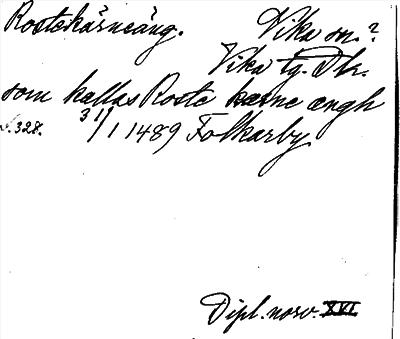 Rostekärneäng. Vika sn.?
Vika tg. Dlr.
som kallas Roste kærne ængh
s. 328. 31/1 1489 Folkarby
Dipl. norv. XVI.